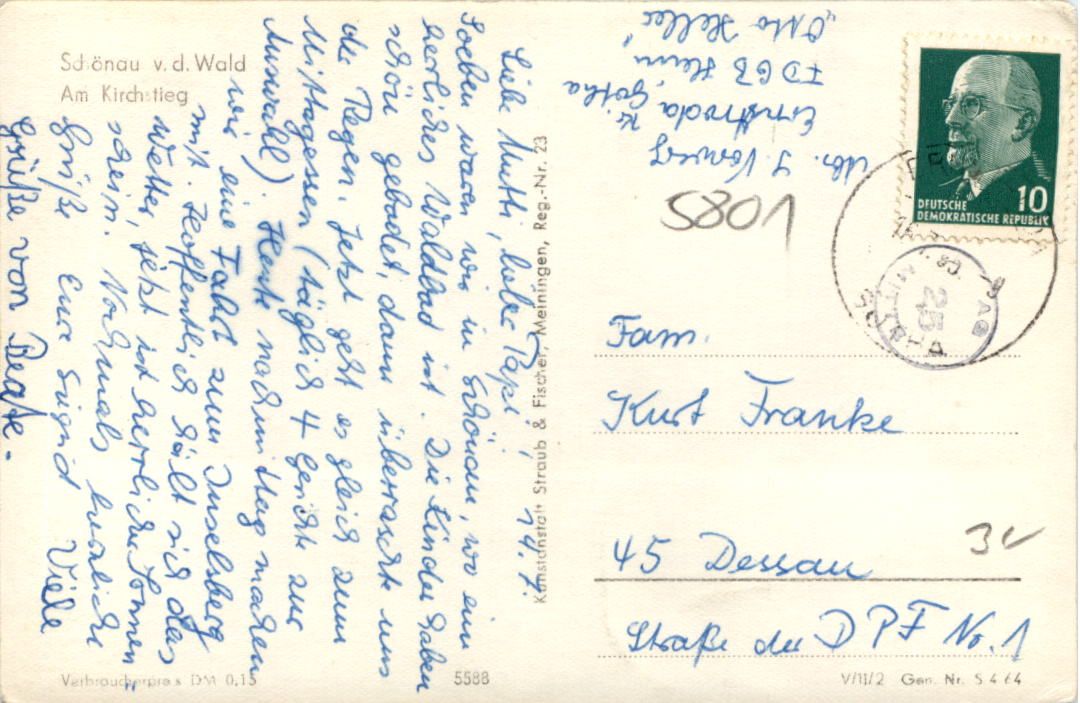 Schönau v. d. Wald
Am Kirchstieg
Liebe Mutti, lieber Papi! 14.7.
Soeben waren wir in Schönau, wo ein
herrliches Waldbad ist. Die Kinder haben
schön gebadet, dann überraschte uns
der Regen. Jetzt geht es gleich zum
Mittagessen (täglich 4 Gerichte zur
Auswahl). Heute nachmittag machen
wir eine Fahrt zum Inselsberg
mit. Hoffentlich hält sich das
Wetter, jetzt ist herrlicher Sonnen-
schein. Nochmals herzliche
Grüße Eure Sigrid Viele
Grüße von Beate.
Verbraucherpreis DM 0,15
5588
Kunstanstalt Straub & Fischer, Meiningen, Reg.-Nr. 23
Abs. J. Vorwerg
Ernstroda, Kr. Gotha
FDGB Heim
"Otto Heller"
5801
DEUTSCHE
DEMOKRATISCHE REPUBLIK
10
25
Fam.
Kurt Franke
45 Dessau
Straße der DPF No. 1
V/11/2 Gen. Nr. S 4 64